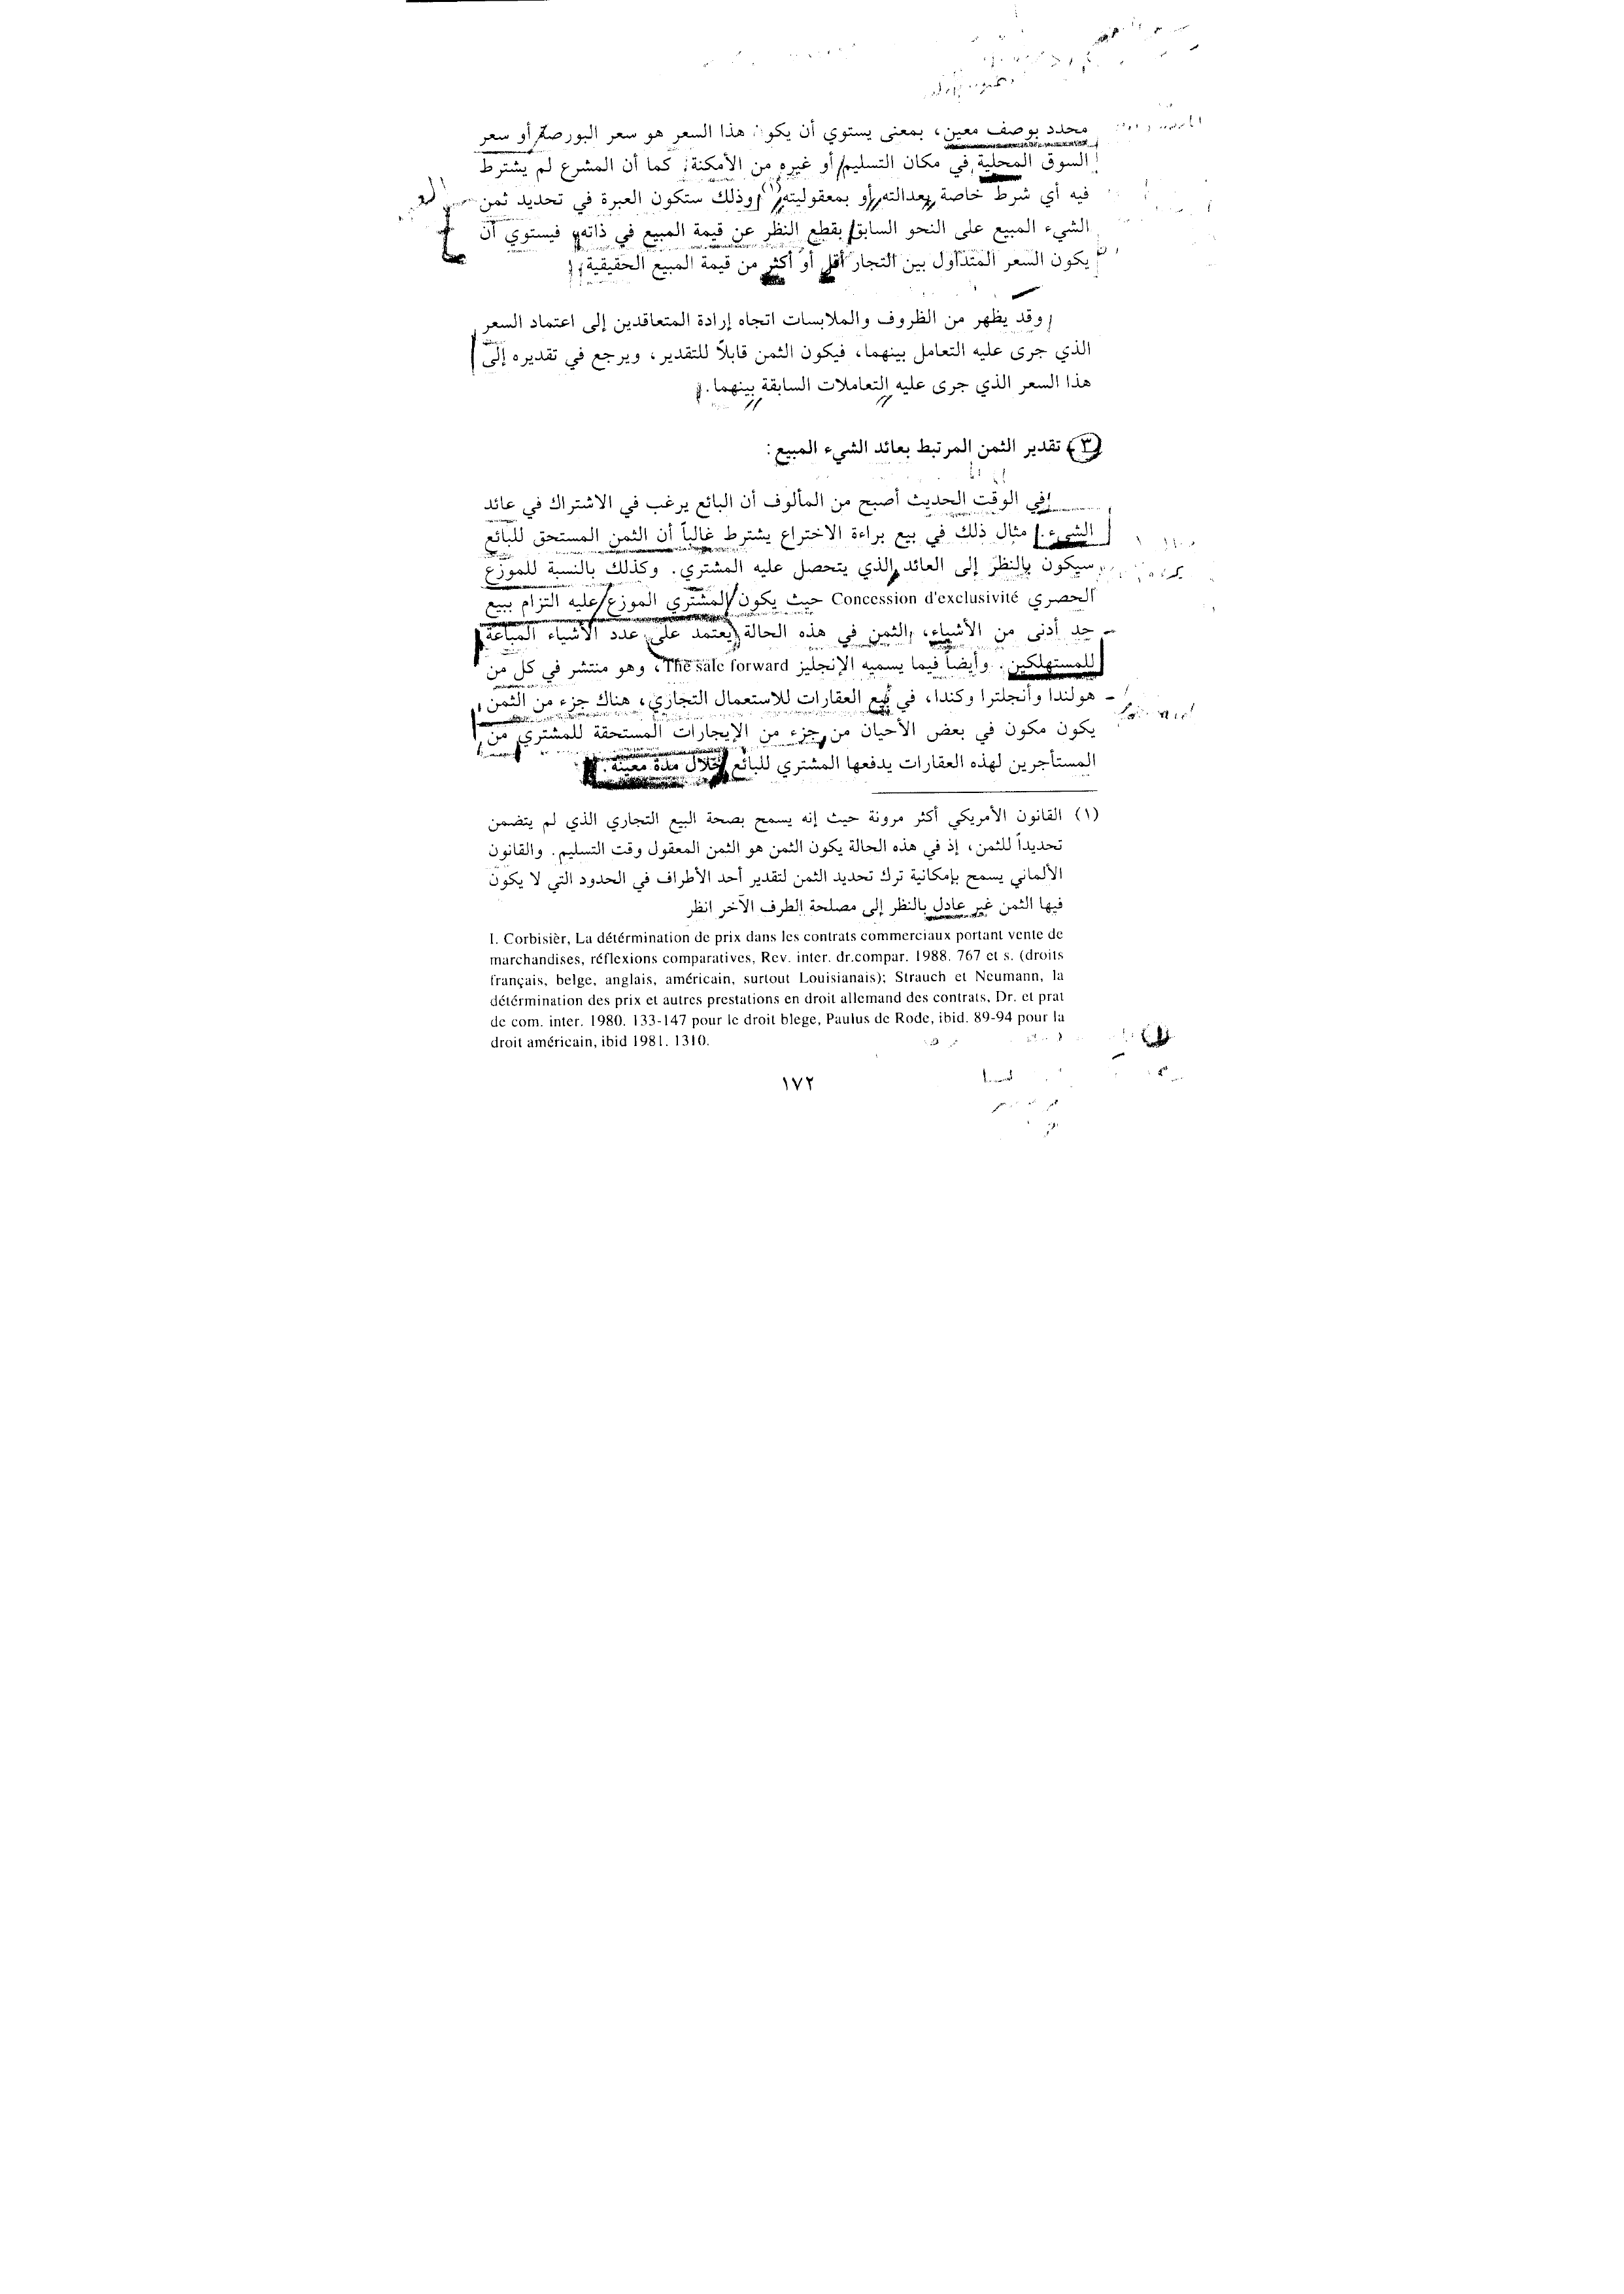 محدد بوصف معين، بمعنى يستوي أن يكون هذا السعر هو سعر البورصة أو سعر
السوق المحلية في مكان التسليم أو غيره من الأمكنة، كما أن المشرع لم يشترط
فيه أي شرط خاصة بعدالته أو بمعقوليته(١) وذلك ستكون العبرة في تحديد ثمن
الشيء المبيع على النحو السابق بقطع النظر عن قيمة المبيع في ذاته، فيستوي أن
يكون السعر المتداول بين التجار أقل أو أكثر من قيمة المبيع الحقيقية.
وقد يظهر من الظروف والملابسات اتجاه إرادة المتعاقدين إلى اعتماد السعر
الذي جرى عليه التعامل بينهما، فيكون الثمن قابلاً للتقدير، ويرجع في تقديره إلى
هذا السعر الذي جرى عليه التعاملات السابقة بينهما.
٣ - تقدير الثمن المرتبط بعائد الشيء المبيع:
في الوقت الحديث أصبح من المألوف أن البائع يرغب في الاشتراك في عائد
الشيء. مثال ذلك في بيع براءة الاختراع يشترط غالباً أن الثمن المستحق للبائع
سيكون بالنظر إلى العائد الذي يتحصل عليه المشتري. وكذلك بالنسبة للموزع
الحصري Concession d'exclusivité حيث يكون المشتري الموزع عليه التزام ببيع
حد أدنى من الأشياء، الثمن في هذه الحالة يعتمد على عدد الأشياء المباعة
للمستهلكين. وأيضاً فيما يسميه الإنجليز The sale forward، وهو منتشر في كل من
هولندا وأنجلترا وكندا، في بيع العقارات للاستعمال التجاري، هناك جزء من الثمن
يكون مكون في بعض الأحيان من جزء من الإيجارات المستحقة للمشتري من
المستأجرين لهذه العقارات يدفعها المشتري للبائع خلال مدة معينة.
(١) القانون الأمريكي أكثر مرونة حيث إنه يسمح بصحة البيع التجاري الذي لم يتضمن
تحديداً للثمن، إذ في هذه الحالة يكون الثمن هو الثمن المعقول وقت التسليم. والقانون
الألماني يسمح بإمكانية ترك تحديد الثمن لتقدير أحد الأطراف في الحدود التي لا يكون
فيها الثمن غير عادل بالنظر إلى مصلحة الطرف الآخر انظر
I. Corbisièr, La détérmination de prix dans les contrats commerciaux portant vente de
marchandises, réflexions comparatives, Rev. inter. dr.compar. 1988. 767 et s. (droits
français, belge, anglais, américain, surtout Louisianais); Strauch et Neumann, la
détérmination des prix et autres prestations en droit allemand des contrats, Dr. et prat
de com. inter. 1980. 133-147 pour le droit blege, Paulus de Rode, ibid. 89-94 pour la
droit américain, ibid 1981. 1310.
١٧٢